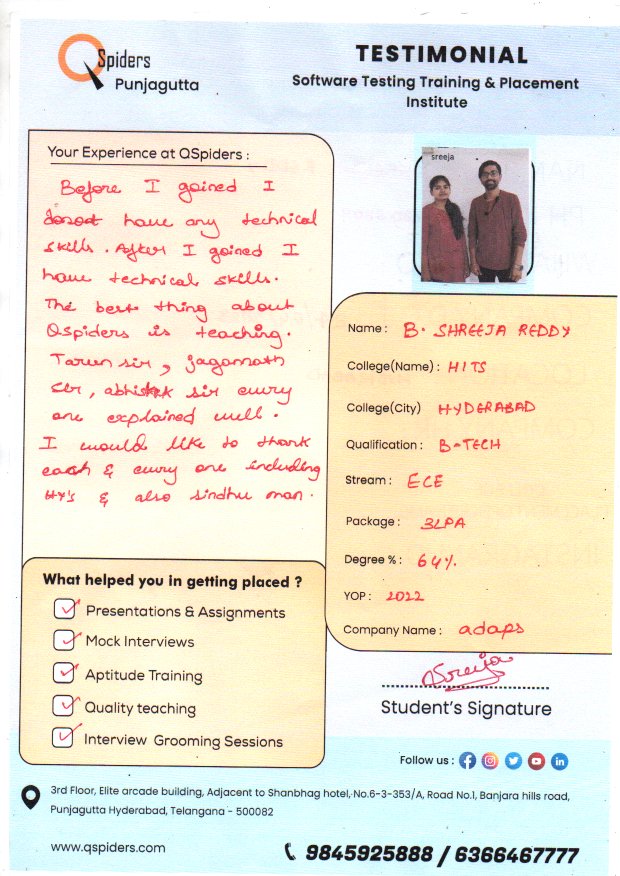 QSpiders
Punjagutta
TESTIMONIAL
Software Testing Training & Placement
Institute
Your Experience at QSpiders :
Before I gained I
have any technical
skills. After I gained I
have technical skills.
The best thing about
Qspiders is teaching.
Tarun sir, jagannath
sir, abhishek sir every
one explained well.
I would like to thank
each & every one including
HR's & also sindhu mam.
sreeja
Name : B. SHREEJA REDDY
College(Name) : HITS
College(City) HYDERABAD
Qualification : B-TECH
Stream : ECE
Package : 3LPA
Degree % : 64%.
YOP : 2022
Company Name : adaps
What helped you in getting placed ?
Presentations & Assignments
Mock Interviews
Aptitude Training
Quality teaching
Interview Grooming Sessions
Sreeja
Student's Signature
Follow us :
3rd Floor, Elite arcade building, Adjacent to Shanbhag hotel, No.6-3-353/A, Road No.1, Banjara hills road,
Punjagutta Hyderabad, Telangana - 500082
www.qspiders.com
9845925888 / 6366467777